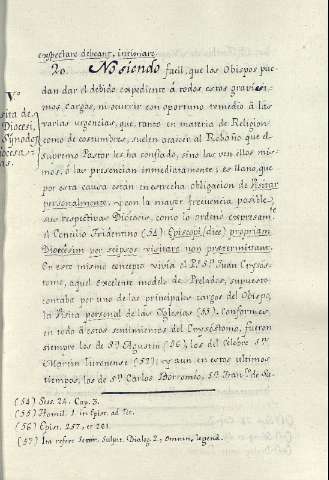 expectare debeant, intimare.
20. No siendo facil, que los Obispos pue-
dan dar el debido expediente à todos estos gravisi-
mos cargos, ni ocurrir con oportuno remedio à las
varias urgencias, que, tanto en materia de Religion
como de costumbres, suelen acaecer al Rebaño que el
supremo Pastor les ha confiado, sino las ven ellos mis-
mos, ò las presencian inmediatamente; es llano, que
por esta causa estàn en estrecha obligacion de Visitar
personalmente, y con la mayor frecuencia posible,
sus respectivas Diòcesis, como lo ordenò expresamte
el Concilio Tridentino (54): Episcopi (dice) propriam
Diocesim per seipsos visitare non prætermittant.
En este mismo concepto vivìa el Pe. Sn. Juan Crysòs-
tomo, aquel excelente modelo de Prelados, supuesto
contaba por uno de los principales cargos del Obispo,
la Visita personal de las Yglesias (55). Conformes,
en todo à estos sentimientos del Crysòstomo, fueron
siempre los de Sn. Agustin (56), los del Cèlebre Sn.
Martin Turonense (57); y aun en estos ultimos
tiempos, los de Sn. Carlos Borromèo, Sn. Franco. de Sa-
Va.
sita de
Diòcesi,
Synodos
(54) Sess. 24. Cap. 3.
(55) Homil. 1. in Epist. ad Tit.
(56) Epist. 237. et 261.
(57) Ita refert Sever. Sulpit. Dialog. 2; omnin. legend.